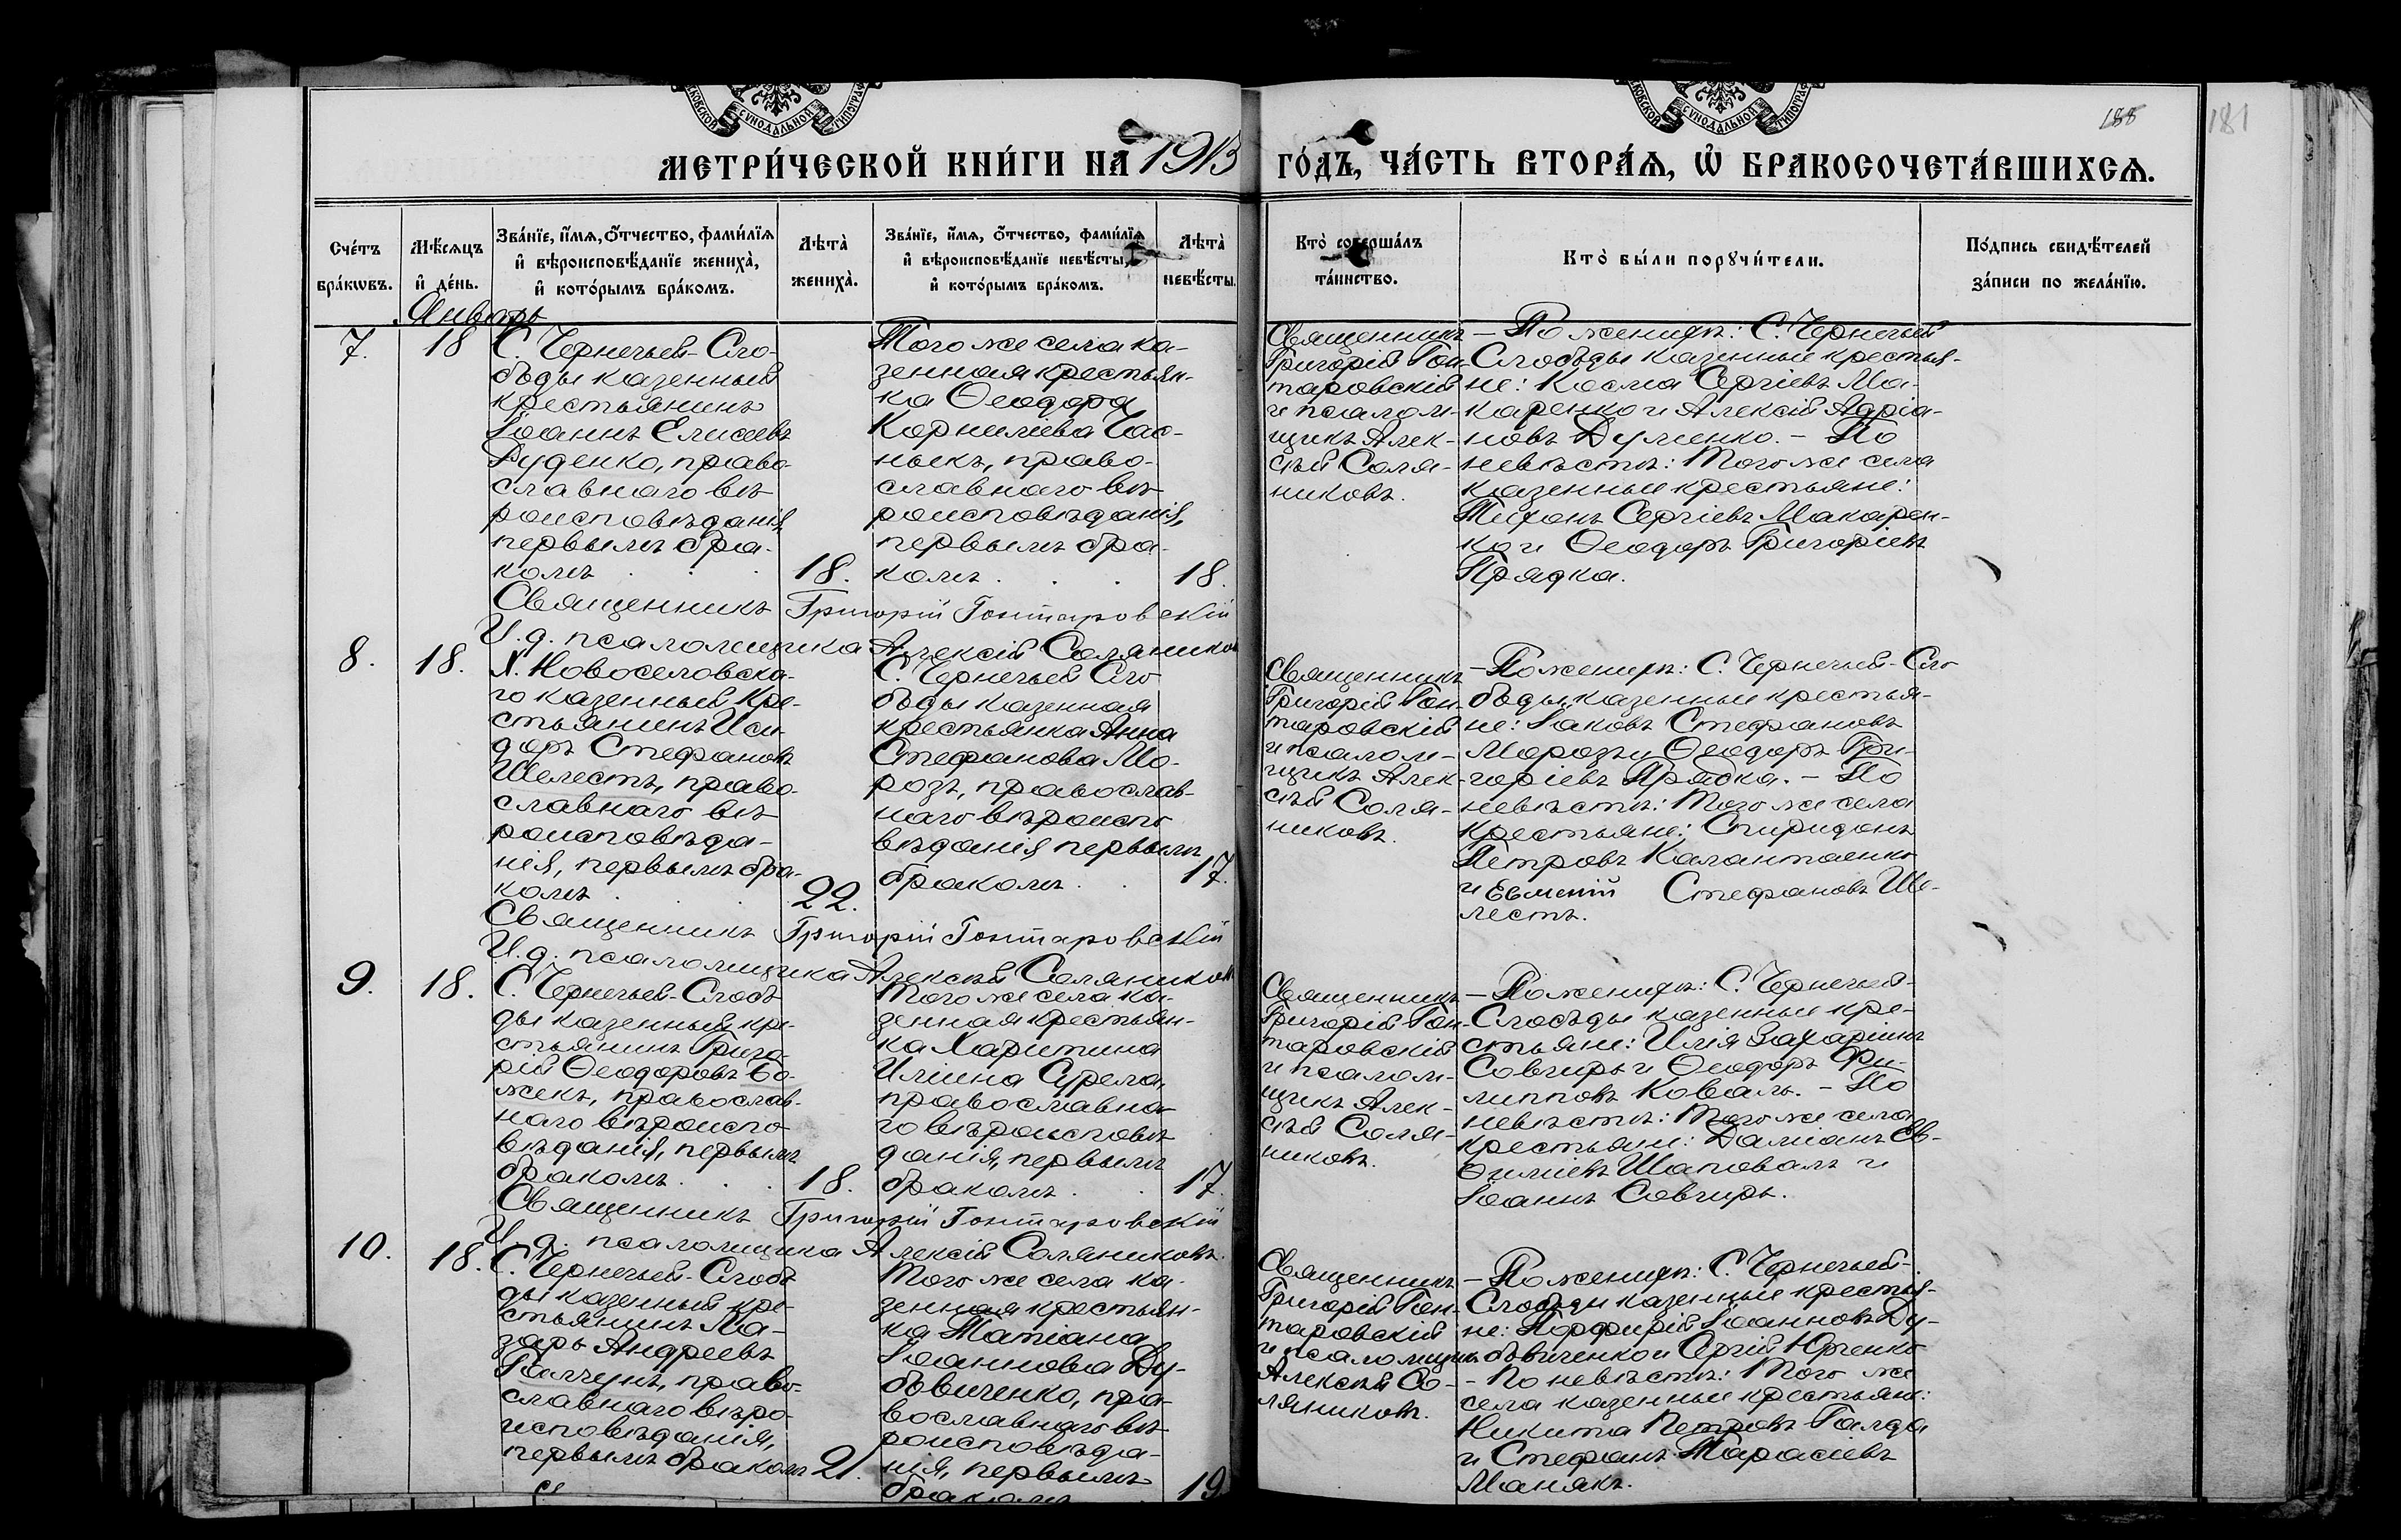 МОСКОВСКОЙ СУНОДАЛЬНОЙ ТИПОГРАФ
СКОВСКОЙ СУНОДАЛЬНОЙ ТИПОГРАФ
188
181
МЕТРИ́ЧЕСКОЙ КНИ́ГИ НА 1913 ГО́ДЪ, ЧА́СТЬ ВТОРА́Я, Ѡ БРАКОСОЧЕТА́ВШИХСЯ.
Сче́тъ
бра́кѡвъ.
Мѣ́сяцъ
и҆ де́нь.
Зва́нїе, и҆́мя, ѻ҆́тчество, фами́лїя
и҆ вѣроисповѣ́данїе жениха̀,
и҆ кото́рымъ бра́комъ.
Лѣта̀
жениха̀.
Зва́нїе, и҆́мя, ѻ҆́тчество, фами́лїя
и҆ вѣроисповѣ́данїе невѣ́сты,
и҆ кото́рымъ бра́комъ.
Лѣта̀
невѣ́сты.
Кто̀ соверша́лъ
та́инство.
Кто̀ бы́ли порꙋчи́тели.
По́дпись свидѣ́телей
за́писи по жела́нїю.
Январь
7.
18
С. Чернечьей-Сло-
боды казенный
крестьянинъ
Іоаннъ Елисеевъ
Руденко, право-
славнаго вѣ-
роисповѣданія,
первымъ бра-
комъ . . .
18.
Того же села ка-
зенная крестьян-
ка Ѳеодора
Корниліева Час-
ныкъ, право-
славнаго вѣ-
роисповѣданія,
первымъ бра-
комъ . . .
18.
Священникъ
Григорій Гон-
таровскій
и псалом-
щикъ Алек-
сѣй Соля-
никовъ.
— По женихѣ: С. Чернечьей
Слободы казенные крестья-
не: Косма Сергіевъ Ма-
каренко и Алексій Адріа-
новъ Думенко. — По
невѣстѣ: Того же села
казенные крестьяне:
Тихонъ Сергіевъ Макарен-
ко и Ѳеодоръ Григоріевъ
Прядка.
Священникъ Григорій Гонтаровскій
И. д. псаломщика Алексій Соляниковъ
8.
18.
Х. Новоселовска-
го казенный кре-
стьянинъ Иси-
доръ Стефановъ
Шелестъ, право-
славнаго вѣ-
роисповѣда-
нія, первымъ бра-
комъ . .
22.
С. Чернечьей Сло
боды казенная
крестьянка Анна
Стефанова Мо-
розъ, православ-
наго вѣроиспо
вѣданія первымъ
бракомъ . .
17.
Священникъ
Григорій Гон-
таровскій
и псалом-
щикъ Алек-
сѣй Соля-
никовъ.
— По женихѣ: С. Чернечьей-Сло
боды казенные крестья-
не: Іаковъ Стефановъ
Морозъ и Ѳеодоръ Гри-
горіевъ Прядка. — По
невѣстѣ: Того же села
крестьяне: Спиридонъ
Петровъ Калантаенко
и Евмений Стефановъ Ше-
лестъ.
Священникъ Григорій Гонтаровскій
И. д. псаломщика Алексѣй Соляниковъ
9.
18.
С. Чернечьей-Слобо
ды казенный кре-
стьянинъ Григо-
рій Ѳеодоровъ Бо-
жекъ, православ-
наго вѣроиспо
вѣданія, первымъ
бракомъ . . .
18.
Того же села ка-
зенная крестьян-
ка Харитина
Иліина Сурела,
православна-
го вѣроисповѣ
данія, первымъ
бракомъ . .
17.
Священникъ
Григорій Гон-
таровскій
и псалом-
щикъ Алек-
сѣй Соля-
никовъ.
— По женихѣ: С. Чернечьей-
Слободы казенные кре-
стьяне: Илія Захаріинъ
Совгирь и Ѳеодоръ Фи-
липповъ Коваль. — По
невѣстѣ: Того же села
крестьяне: Даміанъ Ев-
ѳиміевъ Шаповалъ и
Іоаннъ Совгирь.
Священникъ Григорій Гонтаровскій
И. д. псаломщика Алексій Соляниковъ.
10.
18.
С. Чернечьей-Слобо
ды казенный кре-
стьянинъ Ла-
зарь Андреевъ
Галчунъ, право-
славнаго вѣро-
исповѣданія,
первымъ бракомъ
21.
Того же села ка-
зенная крестьян-
ка Татіана
Іоаннова Ду-
бовиченко, пра-
вославнаго вѣ
роисповѣда-
нія, первымъ
бракомъ
19.
Священникъ
Григорій Гон-
таровскій
и псаломщикъ
Алексѣй Со-
ляниковъ.
— По женихѣ: С. Чернечьей-
Слободы казенные крестья-
не: Порфирій Іоанновъ Ду-
бовиченко и Сергій Юрченко
— По невѣстѣ: Того же
села казенные крестьяне:
Никита Петровъ Галда
и Стефанъ Тарасіевъ
Манякъ.